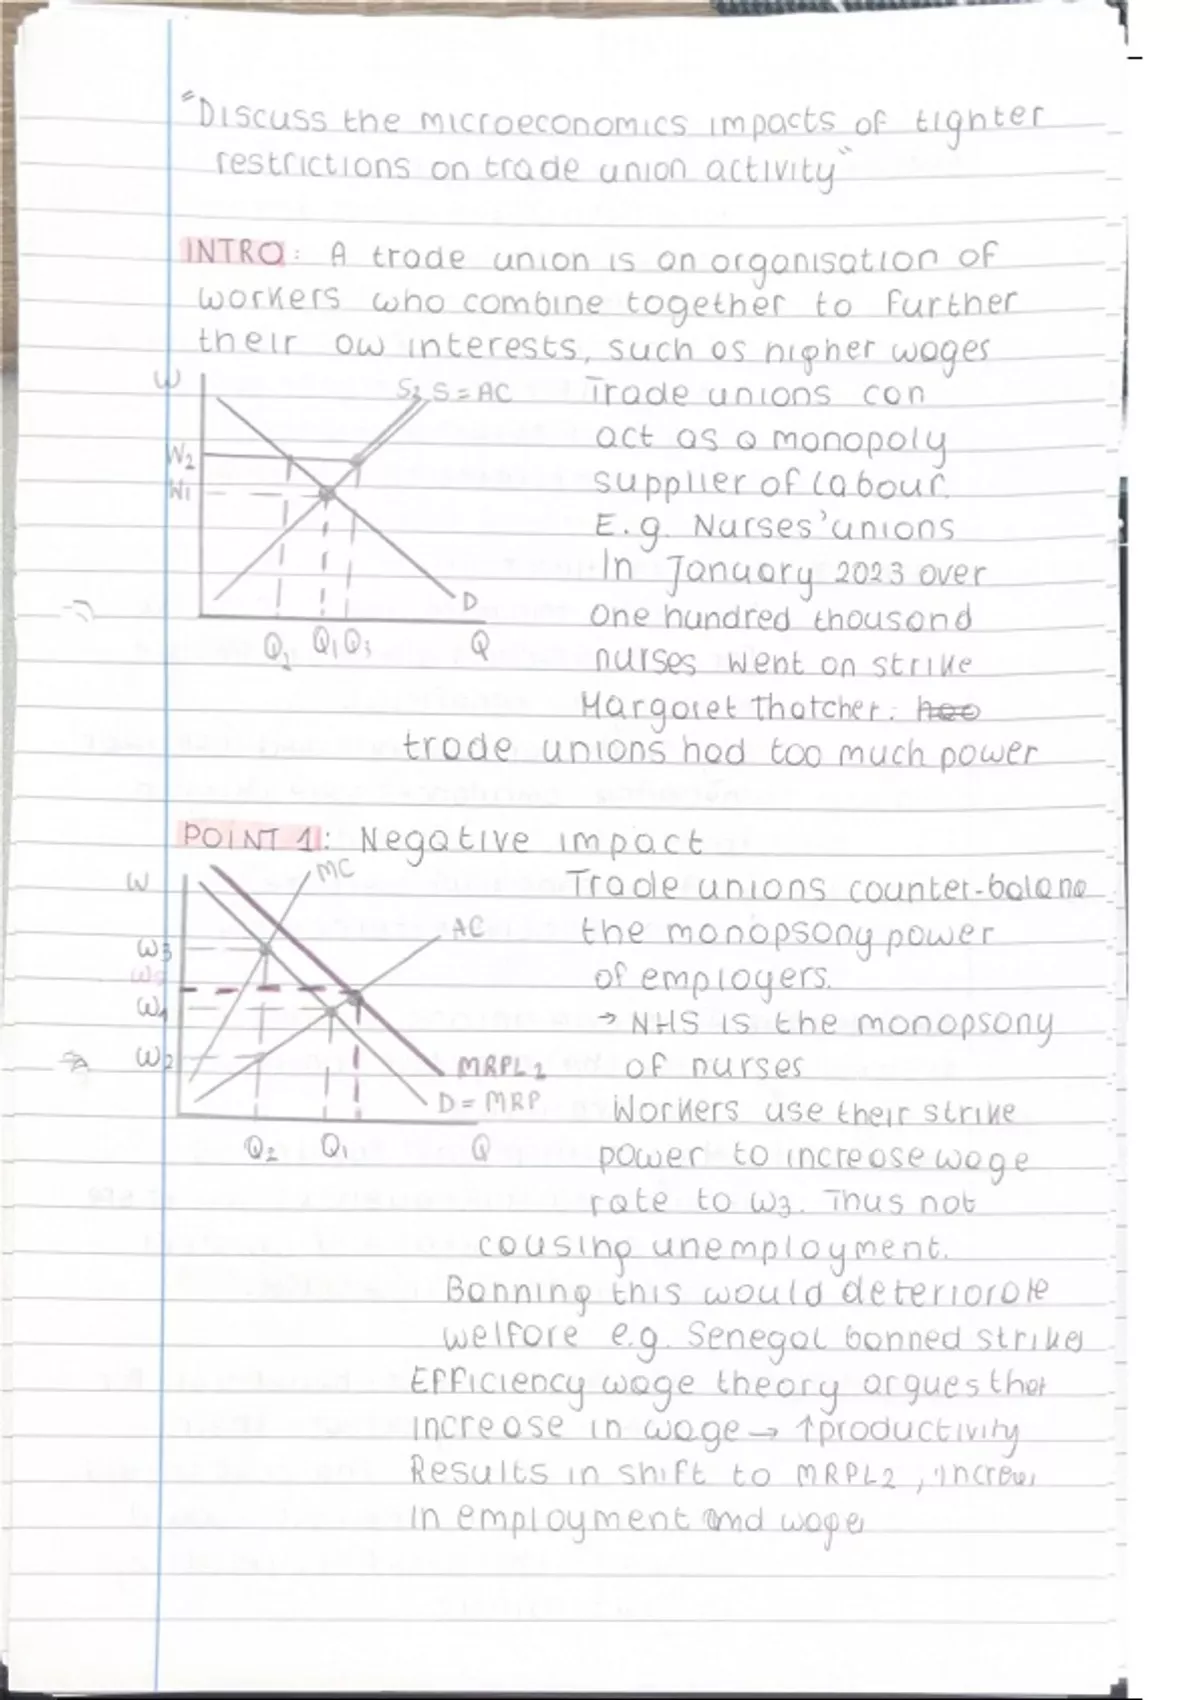 "Discuss the microeconomics impacts of tighter
restrictions on trade union activity"
INTRO: A trade union is an organisation of
workers who combine together to further
their ow interests, such as higher wages
W
S2 S=AC
W2
W1
D
Q2 Q1 Q3 Q
Trade unions can
act as a monopoly
supplier of labour.
E.g. Nurses' unions
In January 2023 over
one hundred thousand
nurses went on strike
Margaret Thatcher:
trade unions had too much power
POINT 1: Negative impact
W
MC
AC
W3
W5
W1
W2
MRPL2
D=MRP
Q2 Q1 Q
Trade unions counter-balanc
the monopsony power
of employers.
→ NHS is the monopsony
of nurses
Workers use their strike
power to increase wage
rate to W3. Thus not
causing unemployment.
Banning this would deteriorate
welfare e.g. Senegal banned strikes
Efficiency wage theory argues that
increase in wage → ↑productivity
Results in shift to MRPL2,
in employment and wage